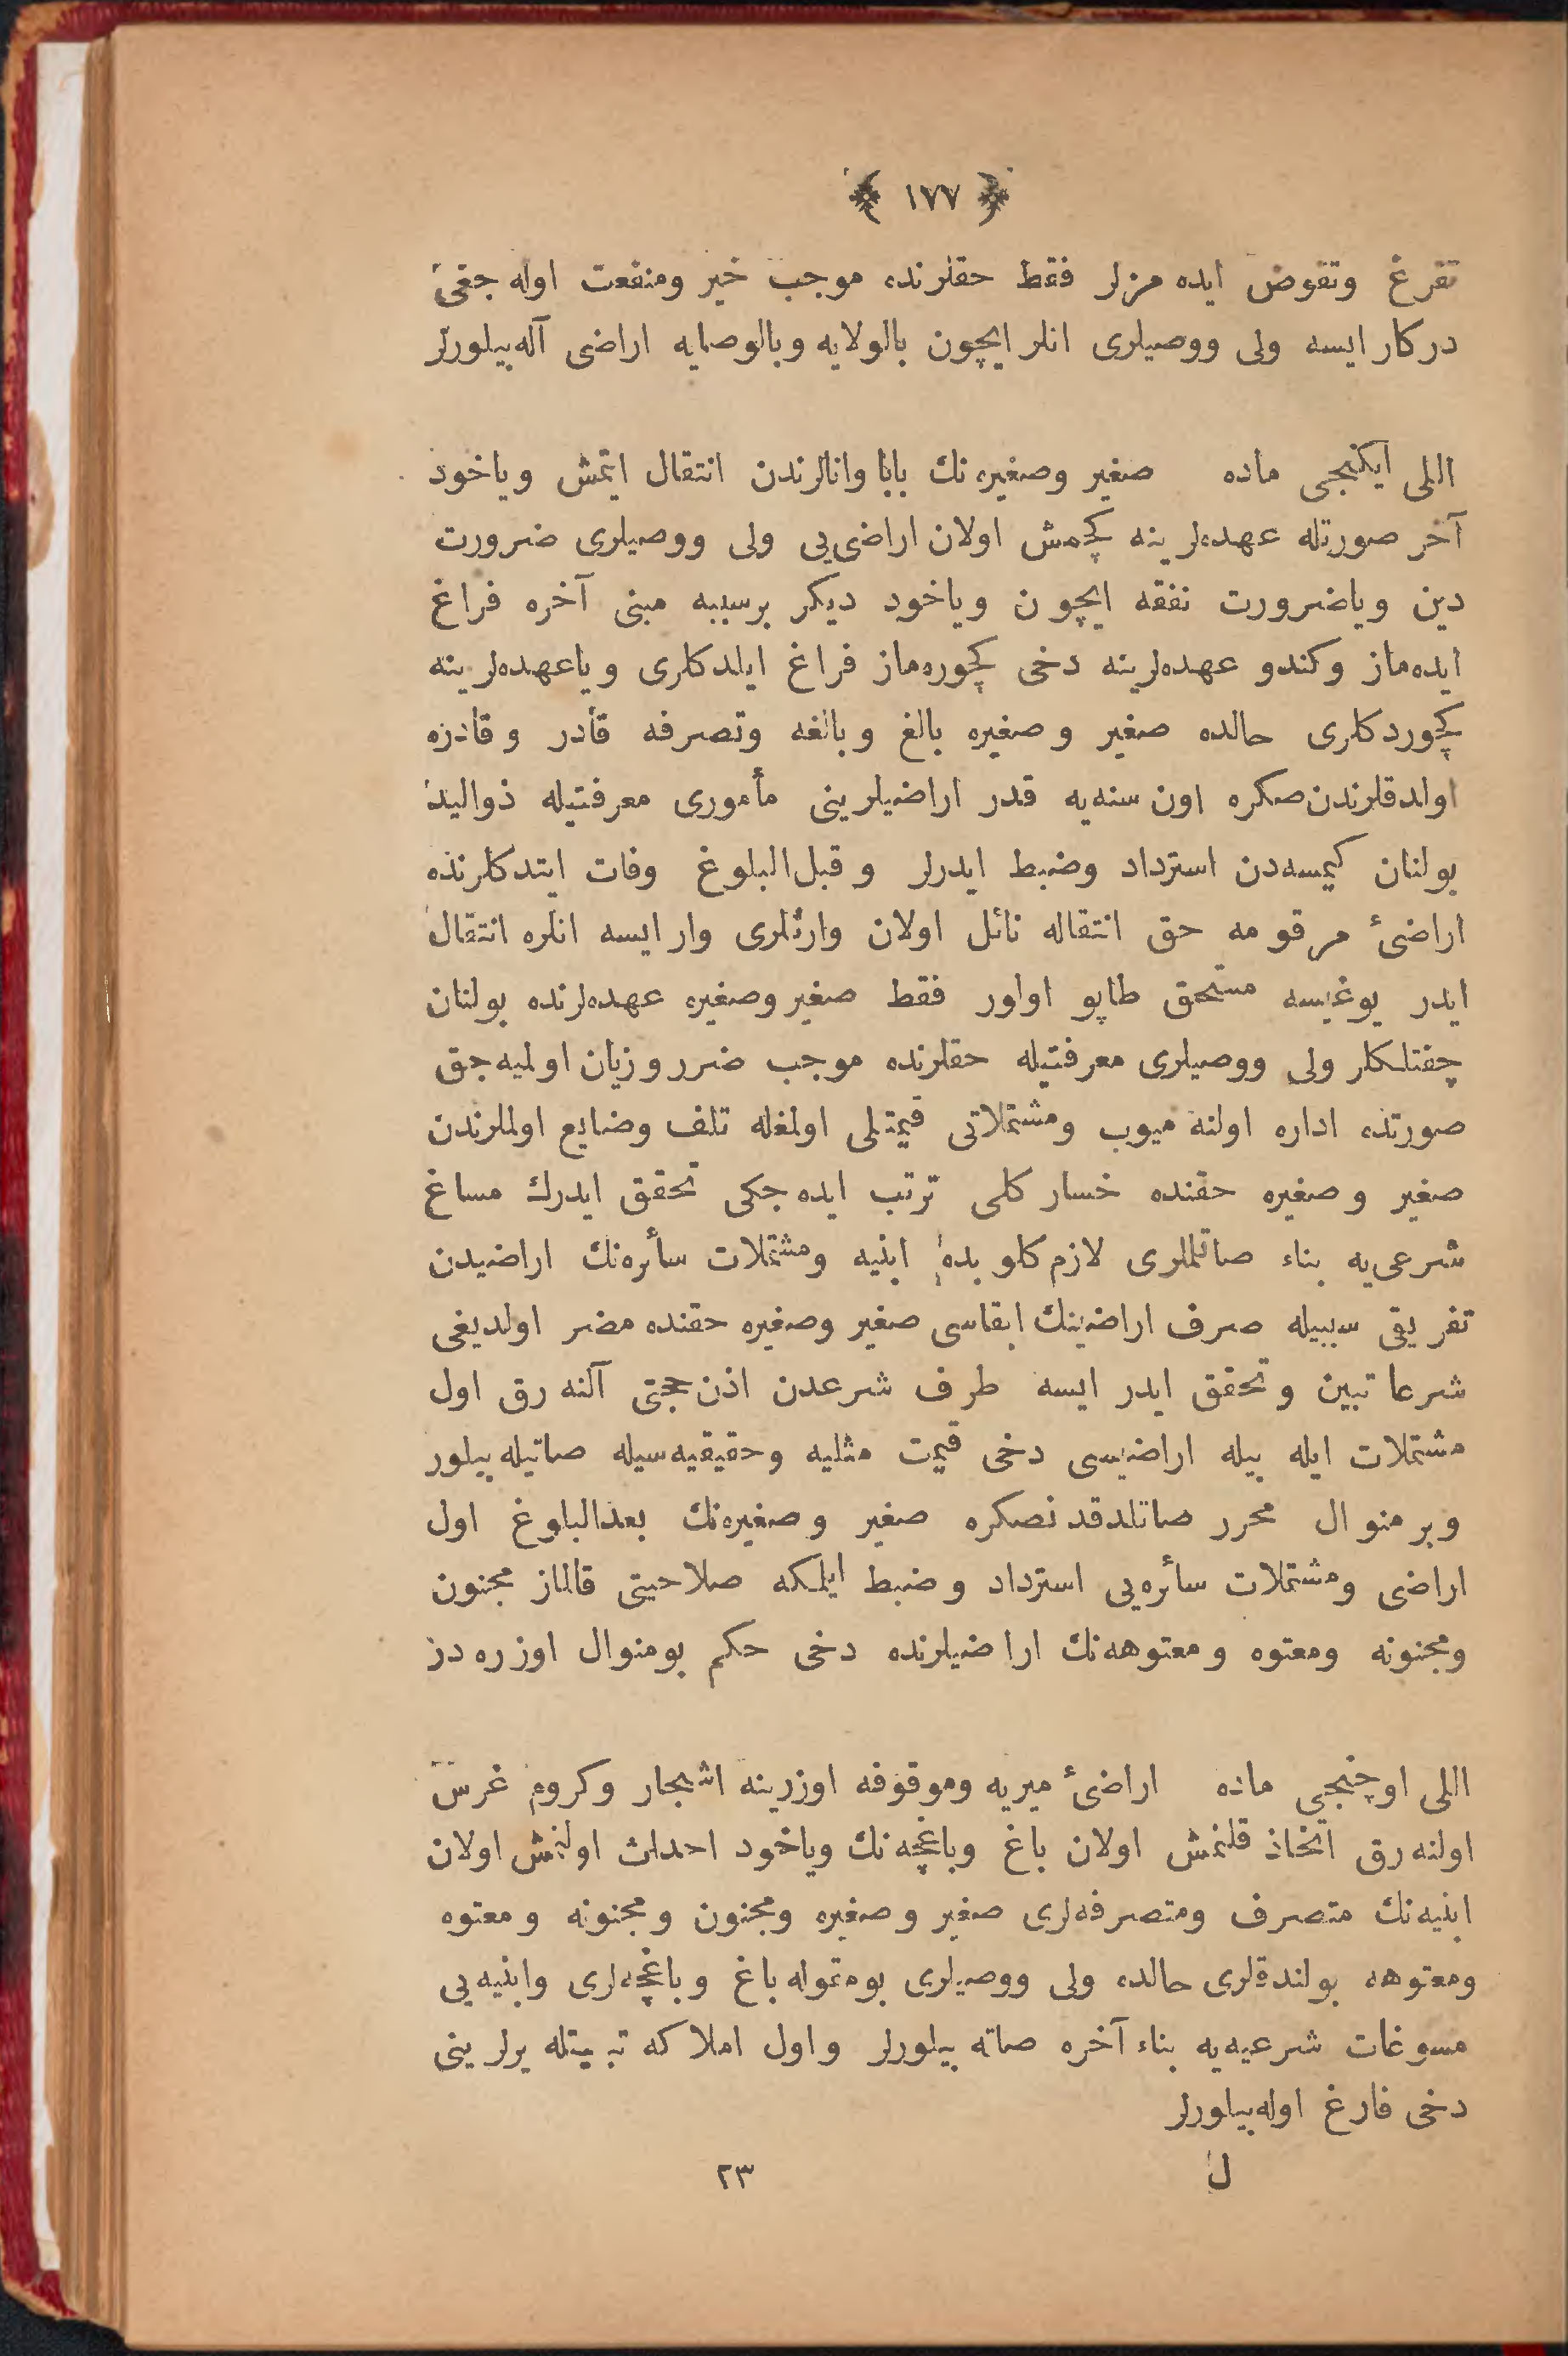 ﴿ ١٧٧ ﴾
تفرغ وتفوض ایده مزلر فقط حقلرنده موجب خیر ومنفعت اوله جغی
درکار ایسه ولی ووصیلری انلر ایچون بالولایه وبالوصایه اراضی آله بیلورلر
اللی ایکنجی ماده صغیر وصغیره نك بابا وانالرندن انتقال ایتمش ویاخود
آخر صورتله عهده‌لرینه کچمش اولان اراضی‌یی ولی ووصیلری ضرورت
دین ویاضرورت نفقه ایچون ویاخود دیکر برسببه مبنی آخره فراغ
ایده‌ماز وکندو عهده‌لرینه دخی کچوره‌ماز فراغ ایلدکلری ویاعهده‌لرینه
کچوردکلری حالده صغیر وصغیره بالغ وبالغه وتصرفه قادر وقادره
اولدقلرندن‌صکره اون سنه‌یه قدر اراضیلرینی مأموری معرفتیله ذوالید
بولنان کیمسه‌دن استرداد وضبط ایدرلر وقبل‌البلوغ وفات ایتدکلرنده
اراضیٔ مرقومه حق انتقاله نائل اولان وارثلری وار ایسه انلره انتقال
ایدر یوغیسه مستحق طاپو اولور فقط صغیر وصغیره عهده‌لرنده بولنان
چفتلکلر ولی ووصیلری معرفتیله حقلرنده موجب ضرر وزیان اولمیه جق
صورتده اداره اولنه میوب ومشتملاتی قیمتلی اولمغله تلف وضایع اولملرندن
صغیر وصغیره حقنده خسار کلی ترتب ایده جکی تحقق ایدرك مساغ
شرعی‌یه بناء صاتلملری لازم کلوبده ابنیه ومشتملات سأره‌نك اراضیدن
تفریقی سببیله صرف اراضینك ابقاسی صغیر وصغیره حقنده مضر اولدیغی
شرعا تبین وتحقق ایدر ایسه طرف شرعدن اذن حجتی آلنه رق اول
مشتملات ایله بیله اراضیسی دخی قیمت مثلیه وحقیقیه‌سیله صاتیله بیلور
وبر منوال محرر صاتلدقدنصکره صغیر وصغیره‌نك بعدالبلوغ اول
اراضی ومشتملات سأره‌یی استرداد وضبط ایلمکه صلاحیتی قالماز مجنون
ومجنونه ومعتوه ومعتوهه‌نك اراضیلرنده دخی حکم بومنوال اوزره در
اللی اوچنجی ماده اراضیٔ میریه وموقوفه اوزرینه اشجار وکروم غرس
اولنه رق اتخاذ قلنمش اولان باغ وباغچه نك ویاخود احداث اولنمش اولان
ابنیه‌نك متصرف ومتصرفه‌لری صغیر وصغیره ومجنون ومجنونه ومعتوه
ومعتوهه بولندقلری حالده ولی ووصیلری بومقوله باغ وباغچه‌لری وابنیه یی
مسوغات شرعیه‌یه بناء آخره صاته بیلورلر واول املاکه تبعیتله یرلرینی
دخی فارغ اوله‌بیلورلر
ل ٢٣